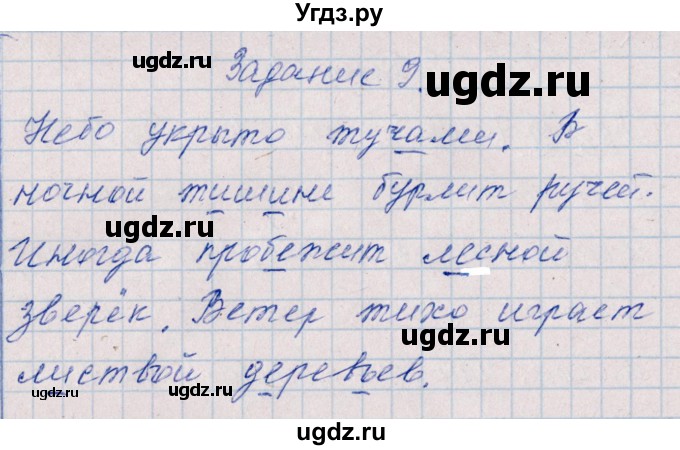 Угдз.ру
Задание 9.
Небо укрыто тучами. В
ночной тишине бурлит ручей.
Иногда пробежит лесной
зверёк. Ветер тихо играет
листвой деревьев.
ugdz.ru
ugdz.ru
ugdz.ru
ugdz.ru
ugdz.ru
ugdz.ru
ugdz.ru
ugdz.ru
ugdz.ru